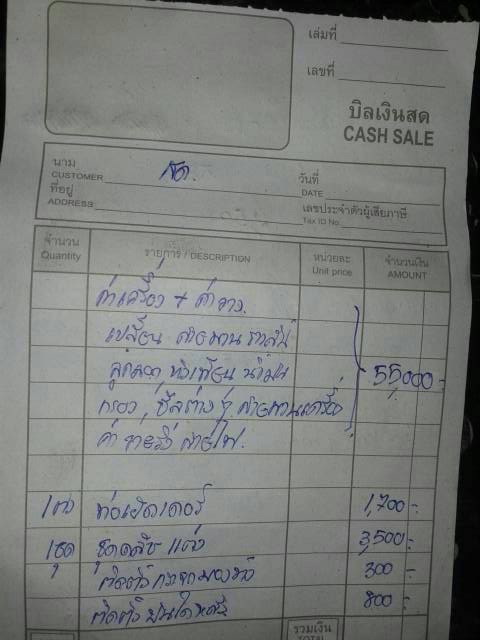 เล่มที่
เลขที่
บิลเงินสด
CASH SALE
นาม
CUSTOMER
สด.
วันที่
DATE
ที่อยู่
ADDRESS
เลขประจำตัวผู้เสียภาษี
Tax ID No.
จำนวน
Quantity
รายการ / DESCRIPTION
หน่วยละ
Unit price
จำนวนเงิน
AMOUNT
ค่าเครื่อง + ค่าวาง.
เปลี่ยน สายพาน ราวลิ้น
ลูกลอก หัวเทียน น้ำมัน 55,000.-
กรอง, ซีลต่างๆ สายพานเครื่อง
ค่า สายไฟ.
ท่อเฮดเดอร์ 1,700.-
1ชุด ชุดคลัช แต่ง 3,500.-
ติดตั้ง กระจกมองข้าง 300.-
ติดตั้ง 800.-
รวมเงิน
TOTAL